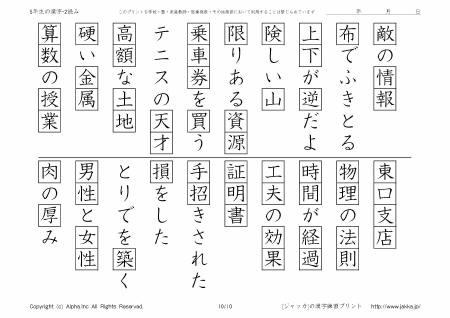 5年生の漢字-2読み
このプリントを学校・塾・家庭教師・医療機関・その他施設において利用することは禁じられています
年 月 日
敵の情報
布でふきとる
上下が逆だよ
険しい山
限りある資源
乗車券を買う
テニスの天才
高額な土地
硬い金属
算数の授業
東口支店
物理の法則
時間が経過
工夫の効果
証明書
手招きされた
損をした
とりでを築く
男性と女性
肉の厚み
Copyright (c) Alpha.Inc All Rights Reserved.
10/10
[ジャッカ]の漢字練習プリント http://www.jakka.jp/